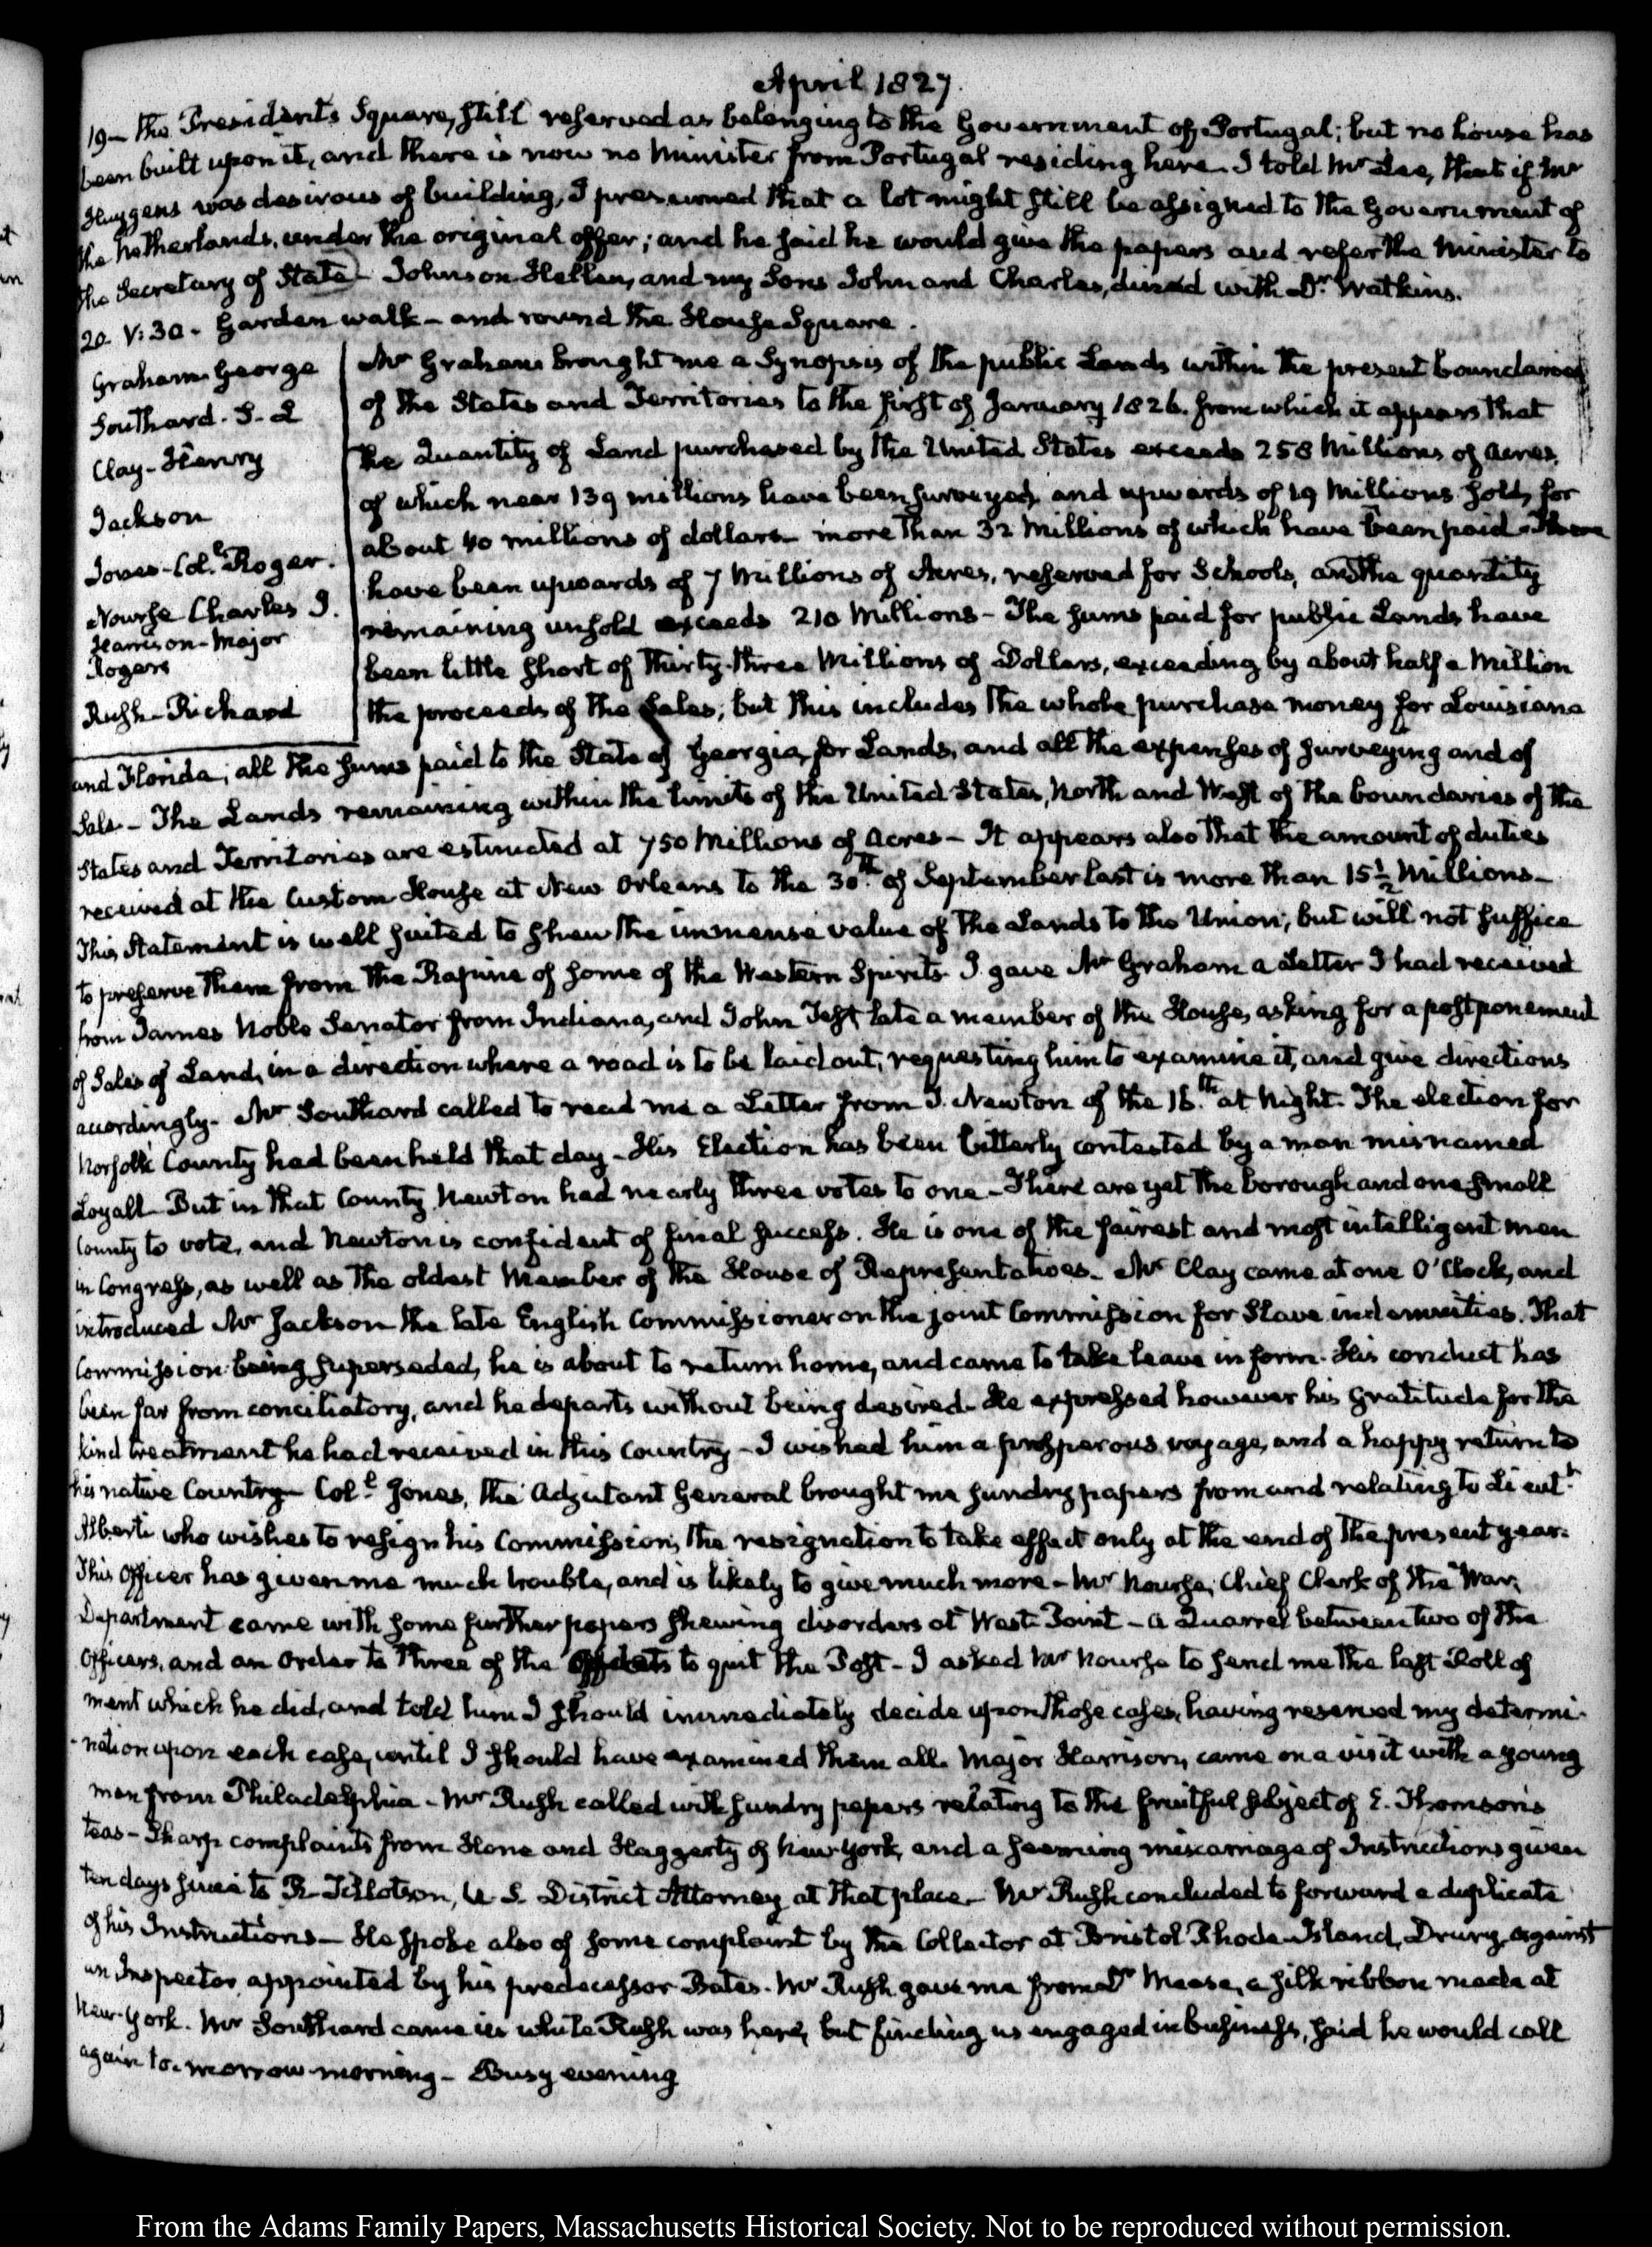 April 1827.
19 — the President's Square, still reserved as belonging to the Government of Portugal; but no house has
been built upon it, and there is now no Minister from Portugal residing here. I told Mr Lee, that if Mr
Huygens was desirous of building, I presumed that a lot might still be assigned to the Government of
the Netherlands, under the original offer; and he said he would give the papers and refer the Minister to
the Secretary of State — Johnson Hellen, and my Sons John and Charles, dined with Dr. Watkins.
20. V:30. Garden walk — and round the House Square.
Graham George
Southard. S. L
Clay — Henry
Jackson
Jones — Col.l Roger.
Nourse Charles J.
Harrison — Major
Rogers
Rush — Richard
Mr Graham brought me a Synopsis of the public Lands within the present boundaries
of the States and Territories to the first of January 1826. from which it appears that
the Quantity of Land purchased by the United States exceeds 258 Millions of acres,
of which near 139 millions have been surveyed, and upwards of 19 Millions sold, for
about 40 millions of dollars — more than 32 Millions of which have been paid — There
have been upwards of 7 Millions of Acres, reserved for Schools, and the quantity
remaining unsold exceeds 210 Millions — The sums paid for public Lands have
been little short of Thirty-three Millions of Dollars, exceeding by about half a Million
the proceeds of the Sales; but this includes the whole purchase money for Louisiana
and Florida; all the sums paid to the State of Georgia, for Lands, and all the expenses of surveying and of
Sale — The Lands remaining within the limits of the United States, North and West of the boundaries of the
States and Territories are estimated at 750 Millions of Acres — It appears also that the amount of duties
received at the Custom House at New Orleans to the 30th. of September last is more than 15½ Millions —
This Statement is well suited to shew the immense value of the Lands to the Union; but will not suffice
to preserve them from the Rapine of some of the Western Spirits. I gave Mr Graham a Letter I had received
from James Noble Senator from Indiana, and John Test late a member of the House, asking for a postponement
of Sales of Land, in a direction where a road is to be laid out; requesting him to examine it, and give directions
accordingly — Mr Southard called to read me a Letter from T. Newton of the 16.th at Night. The election for
Norfolk County had been held that day — His Election has been bitterly contested by a man misnamed
Loyall — But in that County Newton had nearly three votes to one — There are yet the borough and one small
County to vote, and Newton is confident of final success. He is one of the fairest and most intelligent men
in Congress, as well as the oldest Member of the House of Representatives — Mr Clay came at one O'Clock, and
introduced Mr Jackson the late English Commissioner on the joint Commission for Slave indemnities. That
Commission being superseded, he is about to return home, and came to take leave in form. His conduct has
been far from conciliatory, and he departs without being desired. He expressed however his gratitude for the
kind treatment he had received in this Country — I wished him a prosperous voyage, and a happy return to
his native Country — Col.l Jones, the Adjutant General brought me sundry papers from and relating to Lieut.t
Alberti who wishes to resign his Commission; the resignation to take effect only at the end of the present year.
This Officer has given me much trouble, and is likely to give much more — Mr Nourse, Chief Clerk of the War
Department came with some further papers shewing disorders at West-Point — a Quarrel between two of the
Officers, and an Order to three of the to quit the Post — I asked Mr Nourse to send me the last Roll of
ment which he did, and told him I should immediately decide upon those cases, having reserved my determi-
-nation upon each case, until I should have examined them all. Major Harrison, came on a visit with a young
man from Philadelphia — Mr Rush called with sundry papers relating to the fruitful subject of E. Thomson's
teas — Sharp complaints from Hone and Haggerty of New-York, and a seeming miscarriage of Instructions given
ten days since to R Tillotson, U. S. District Attorney at that place — Mr Rush concluded to forward a duplicate
of his Instructions — He spoke also of some complaint by the Collector at Bristol Rhode-Island, Drury, against
an Inspector appointed by his predecessor Bates. Mr Rush gave me from Dr Mease, a silk ribbon made at
New-York. Mr Southard came in while Rush was here, but finding us engaged in business, said he would call
again to-morrow morning — Busy evening
From the Adams Family Papers, Massachusetts Historical Society. Not to be reproduced without permission.